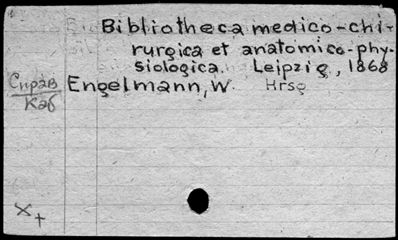 Bibliotheca medico-chi-
rurgica et anatomico-phy-
siologica. Leipzig, 1868
Справ
Каб
Engelmann, W. Hrsg